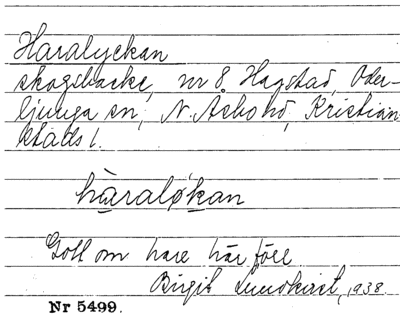 Haralyckan
skogsbacke, nr 8 Hagstad, Oder-
ljunga sn, N. Åsbo hd, Kristian-
stads l.
hàralǫkan
Soll om hare här föll
Birgit Lundkvist, 1938.
Nr 5499.